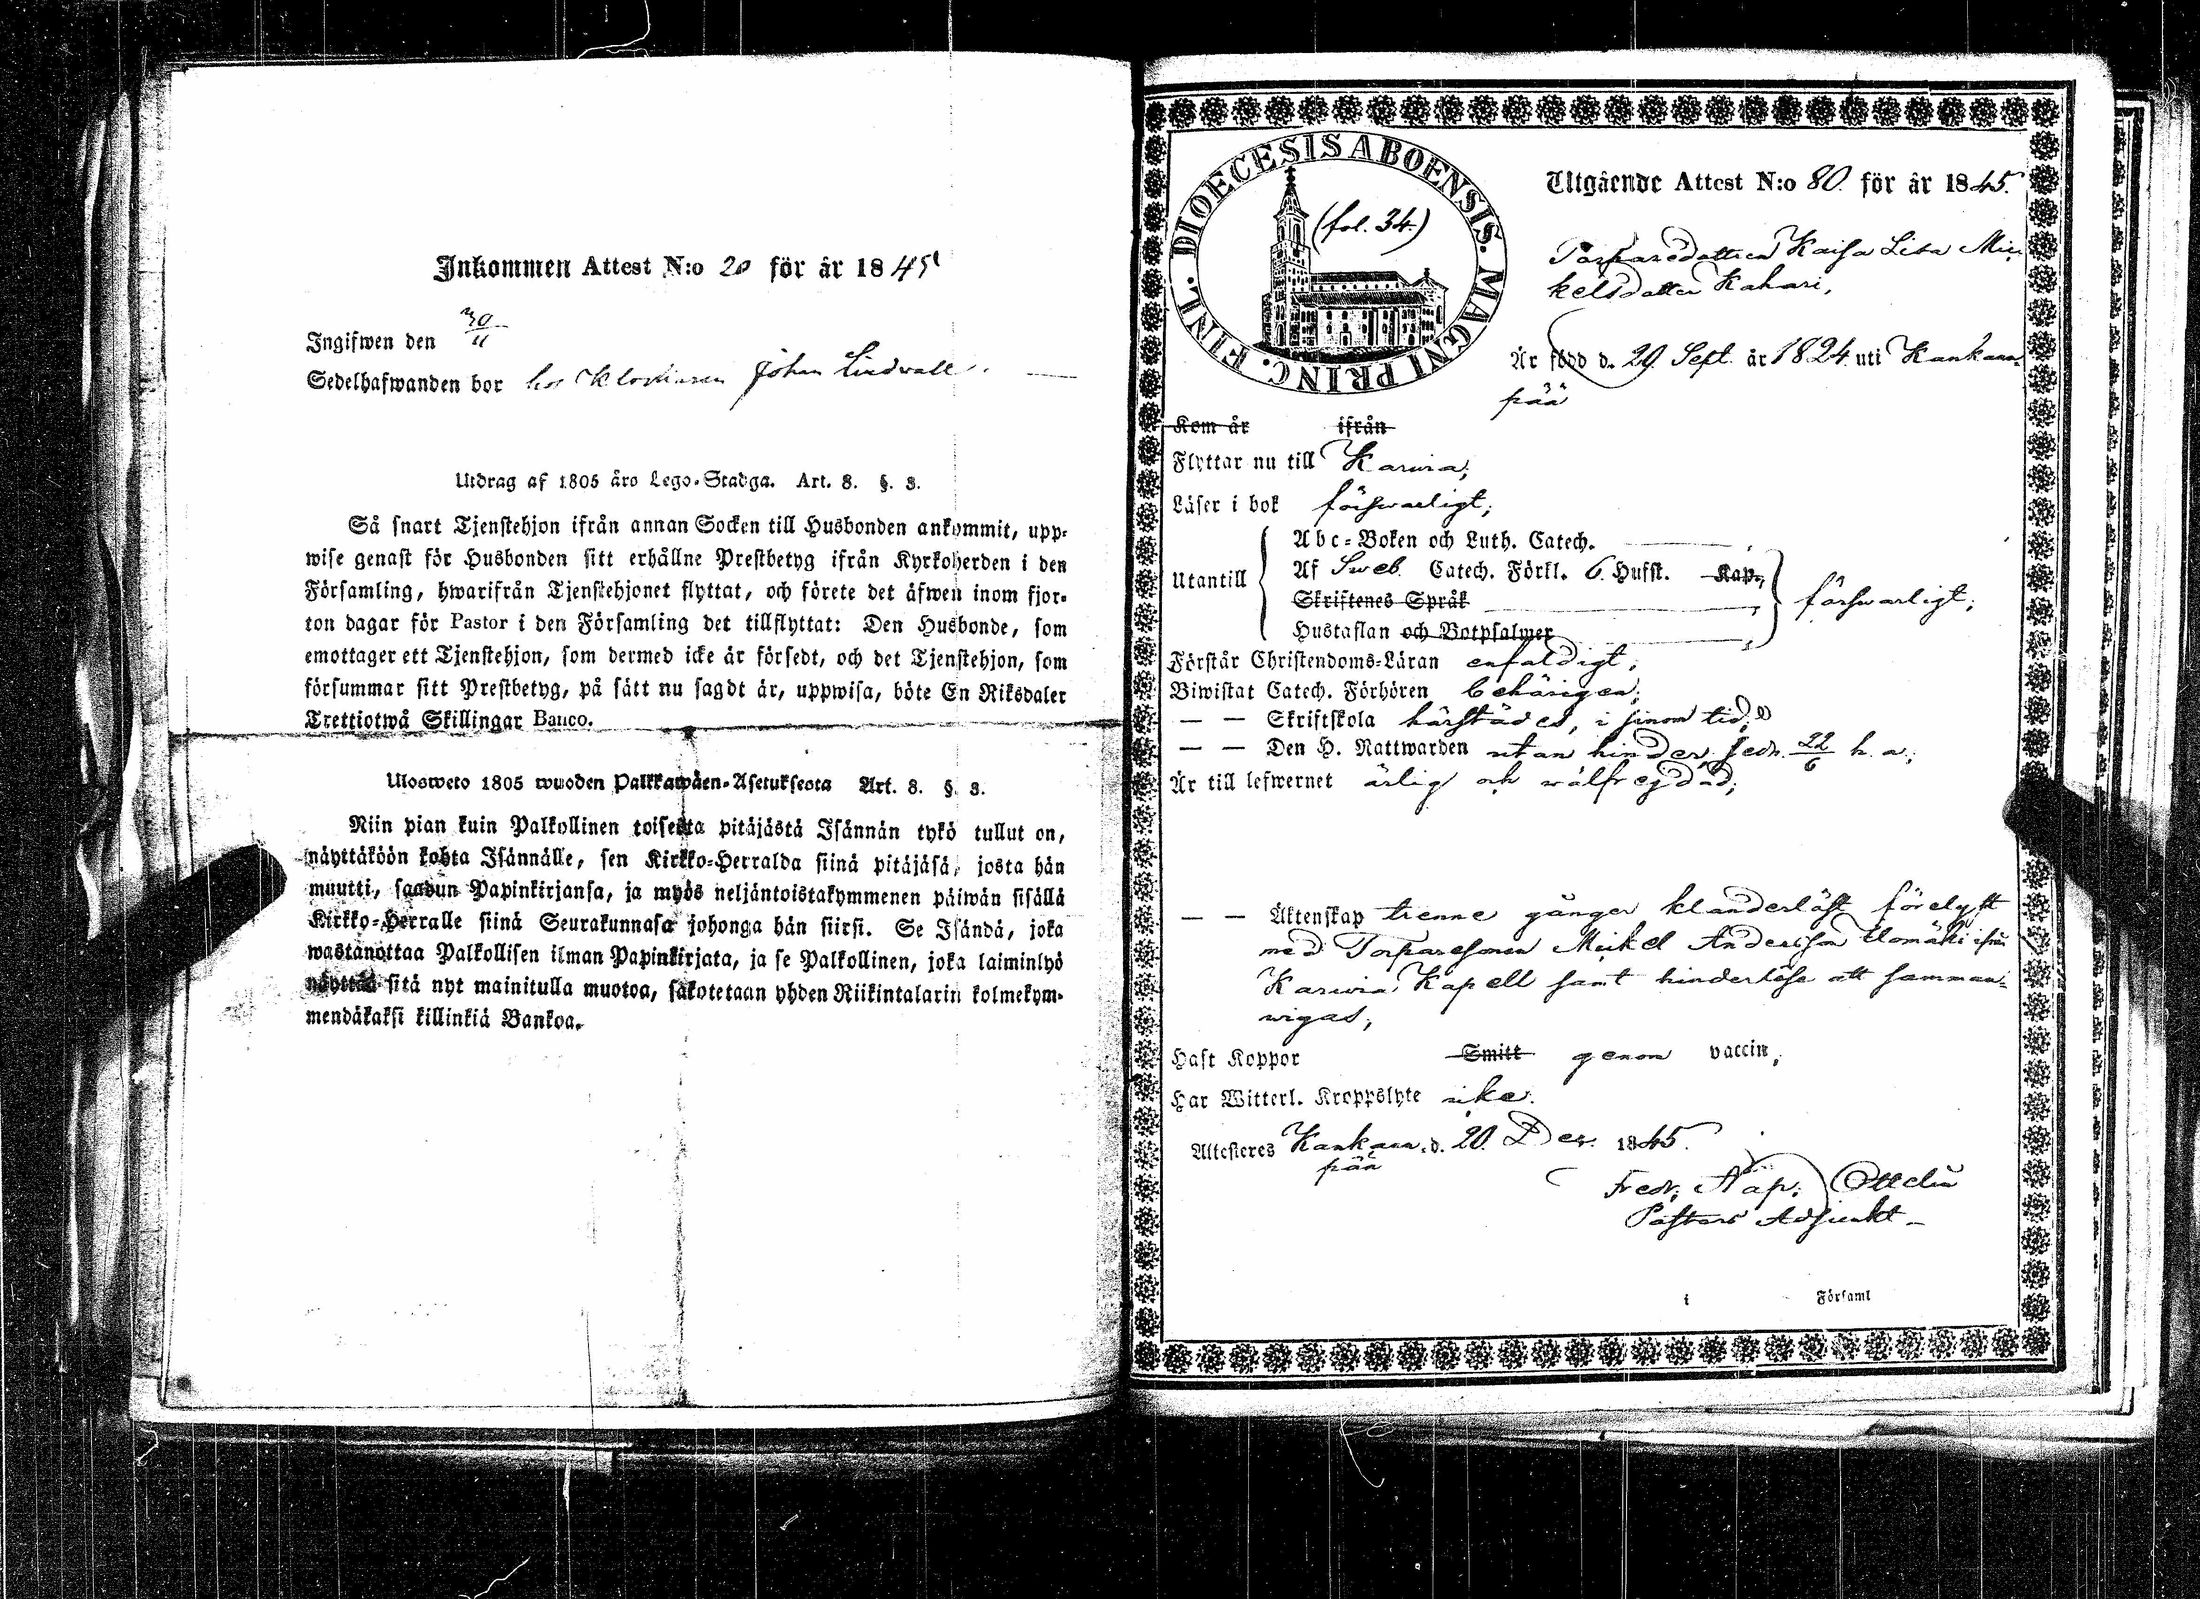 Inkommen Attest N:o 20 för år 1845
Ingifwen den 30/11
Sedelhafwanden bor hos Klockaren Johan Lindwall.
Utdrag af 1805 års Lego-Stadga. Art. 8. §. 3.
Så snart Tjenstehjon ifrån annan Socken till Husbonden ankommit, upp-
wise genast för Husbonden sitt erhållne Prestbetyg ifrån Kyrkoherden i den
Församling, hwarifrån Tjenstehjonet flyttat, och förete det äfwen inom fjor-
ton dagar för Pastor i den Församling det tillflyttat: Den Husbonde, som
emottager ett Tjenstehjon, som dermed icke är försedt, och det Tjenstehjon, som
försummar sitt Prestbetyg, på sätt nu sagdt är, uppwisa, böte En Riksdaler
Trettiotwå Skillingar Banco.
Ulosweto 1805 wuoden Palkkawäen-Asetuksesta Art. 8. §. 3.
Niin pian kuin Palkollinen toisesta pitäjästä Isännän tykö tullut on,
näyttäköön kohta Isännälle, sen Kirkko-Herralda siinä pitäjäsä, josta hän
muutti, saadun Papinkirjansa, ja myös neljäntoistakymmenen päiwän sisällä
Kirkko-Herralle siinä Seurakunnasa johonga hän siirsi. Se Isändä, joka
wastanottaa Palkollisen ilman Papinkirjata, ja se Palkollinen, joka laiminlyö
näyttää sitä nyt mainitulla muotoa, sakotetaan yhden Riikintalarin kolmekym-
mendäkaksi killinkiä Bankoa.
DIOECESIS ABOENSIS. MAGNI PRINC. FINL.
(fol. 34.)
Utgående Attest N:o 80. för år 1845.
Torparedottren Kaisa Lisa Mi-
kelsdotter Kahari,
Är född d. 29. Sept. år 1824. uti Kankaan-
pää
Kom år ifrån
Flyttar nu till Karvia,
Läser i bok försvarligt;
Utantill
Abc-Boken och Luth. Catech.
Af Sveb. Catech. Förkl. 6. Hufst. Kap.
Skriftenes Språk
Hustaflan och Botpsalmer
försvarligt;
Förstår Christendoms-Läran enfaldigt;
Biwistat Catech. Förhören behörigen;
— — Skriftskola härstädes, i sinom tid;
— — Den H. Nattwarden utan hinder, sedn. 22/6 h. a.;
Är till lefwernet ärlig och wälfrejdad;
— — Äktenskap trenne gånger klanderlöst förelyst
med Torparesonen Mickel Andersson Elomäki ifrån
Karvia Kapell samt hinderlöse att samman-
wigas;
Haft Koppor Smitt genom vaccin;
Har Witterl. Kroppslyte icke.
Attesteres Kankaan- d. 20. Dec. 1845.
pää
Fredr. Nap. Ottelin
Pastors Adjunkt
i Församl